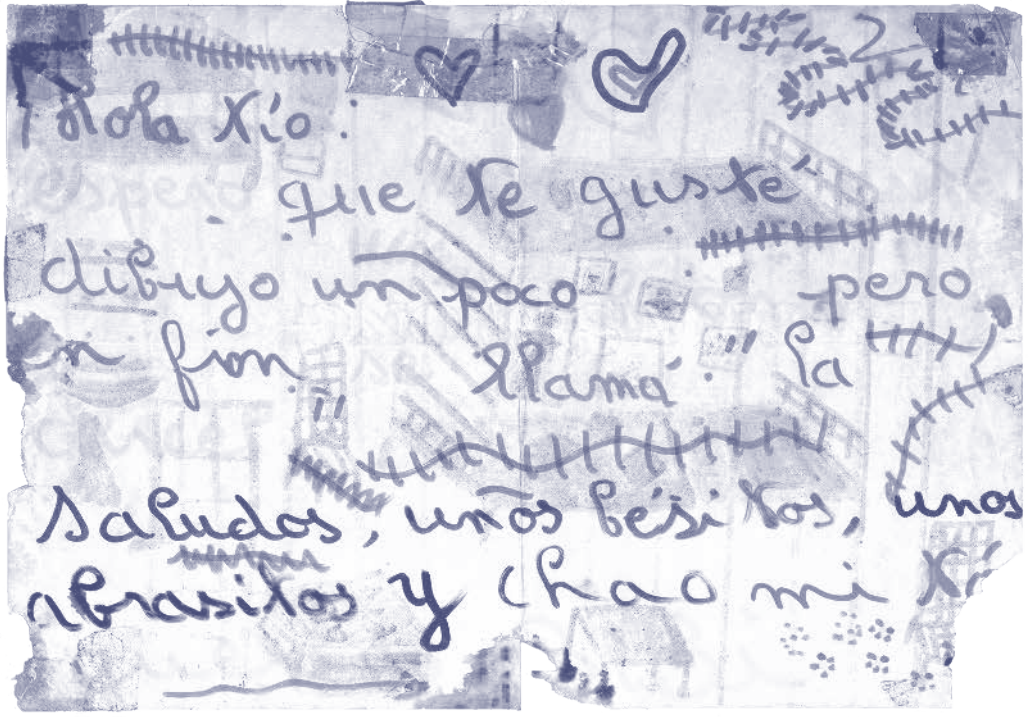 ¡Hola tío.
que te guste
dibujo un poco pero
en fin. llamá. " la
"
saludos, unos bésitos, unos
abrasitos y chao mi